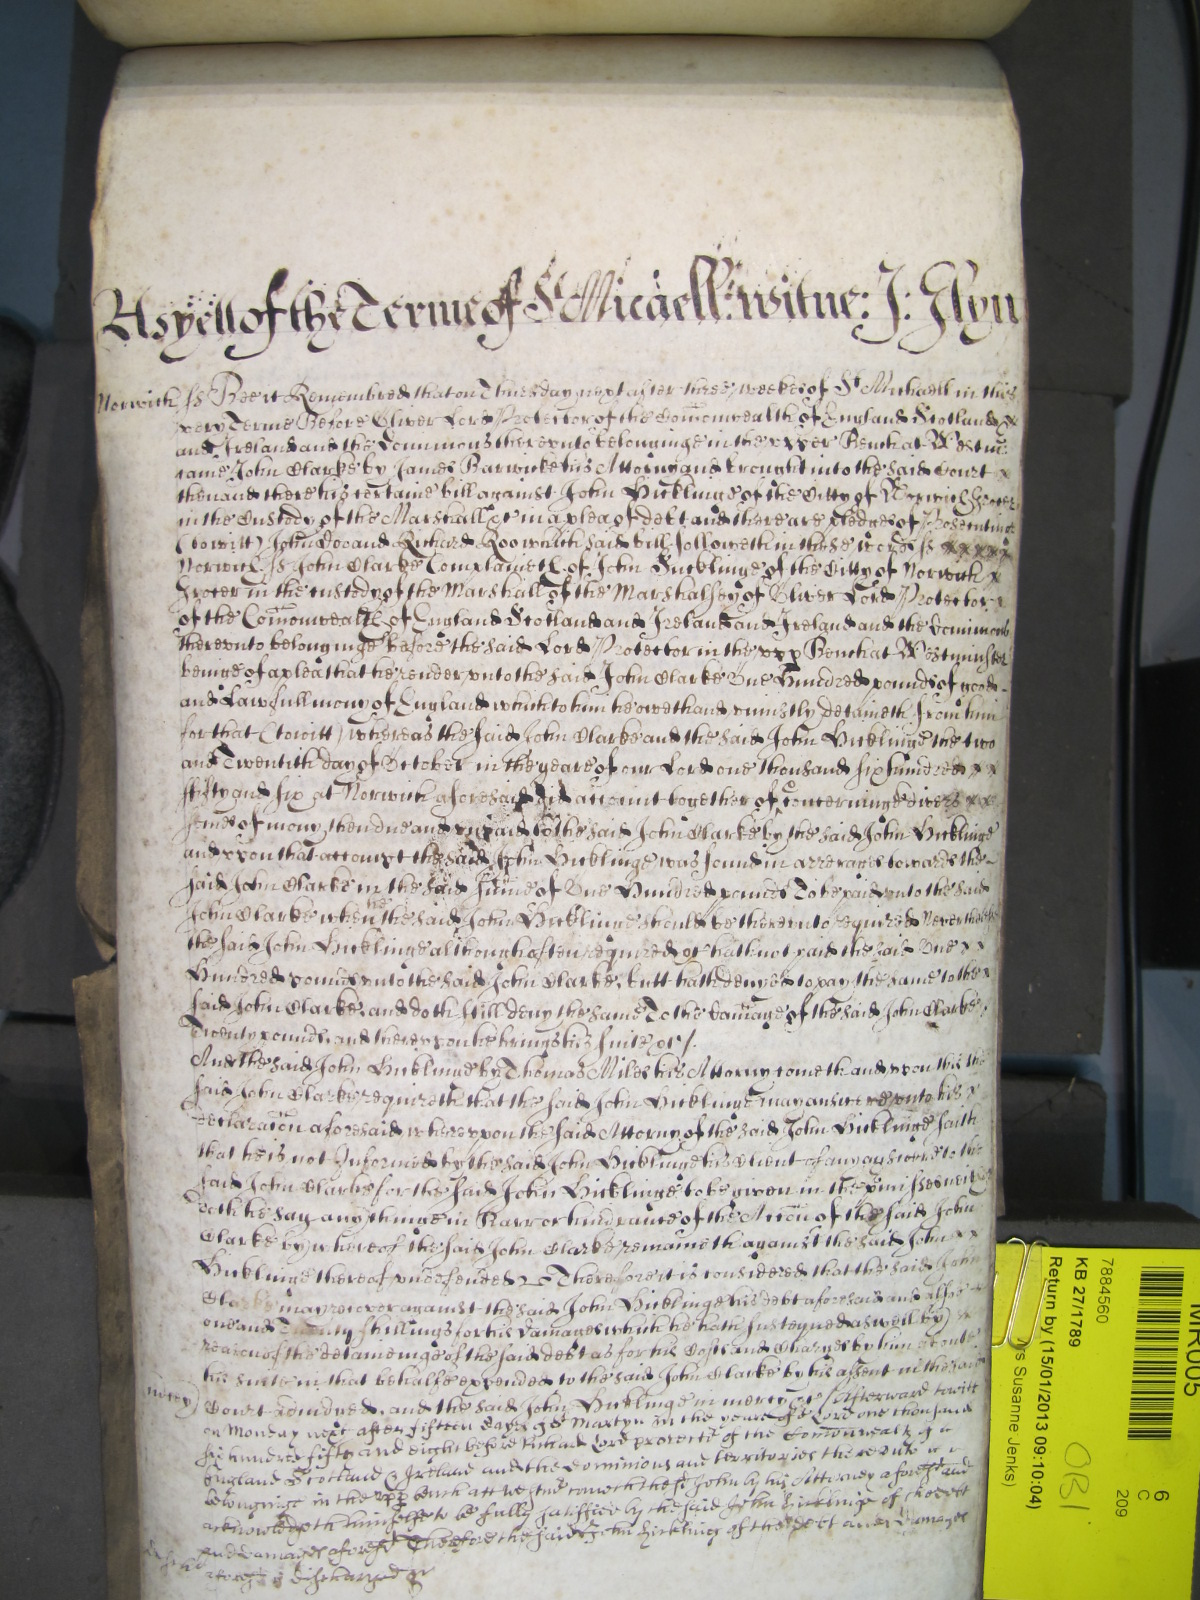 As yett of the Terme of St Micaell: witne: J: Glyn
Norwich ss Bee it Remembred that on Thursday next after three weekes of St Michaell in this
very Terme Before Oliver Lord Protector of the Comonwealth of England Scotland
and Ireland and the Dominions thereunto belonginge in the upper Bench at Westm
came John Clarke by James Barwicke his Attorny and brought into the said Court
then and there his certaine bill against John Hicklinge of the Citty of Norwich Grocer
in the Custody of the Marshall &c in a plea of debt and there are pledges of Prosecutinge
(towitt) John Doo and Richard Roo which said bill followeth in these words ss
Norwich ss John Clarke Complaineth of John Hicklinge of the Citty of Norwich
Grocer in the custody of the Marshall of the Marshalsey of Oliver Lord Protector
of the Comonwealth of England Scotland and Ireland and Ireland and the Dominions
thereunto belonginge before the said Lord Protector in the upp Bench at Westminster
beinge of a plea that he render unto the said John Clarke One Hundred pounds of good
and Lawfull mony of England which to him he oweth and uniustly detaineth from him
for that (towitt) whereas the said John Clarke and the said John Hicklinge the two
and Twentith day of October in the yeare of our Lord one thousand six hundred
fifty and six at Norwich aforesaid did account together of concerninge divers
somes of mony then due and unpaid to the said John Clarke by the said John Hicklinge
and upon that accompt the said John Hicklinge was found in arrerages towards the
said John Clarke in the said sume of One Hundred pounds To be paid unto the said
John Clarke when the said John Hicklinge should be thereunto required Neverthelesse
the said John Hicklinge although often required &c hath not paid the said One
Hundred pounds unto the said John Clarke, butt hath denyed to pay the same to the
said John Clarke, and doth still deny the same To the damage of the said John Clarke
Twenty pounds, and thereupon he brings his suite &c /.
And the said John Hicklinge by Thomas Miles his Attorny cometh and upon this the
said John Clarke requireth that the said John Hicklinge may answere unto his
declaracon aforesaid whereupon the said Attorny of the said John Hicklinge saith
that he is not Informed by the said John Hicklinge his Client of any answere to the
said John Clarke for the said John Hicklinge to be given in the premisses neither
doth he say any thinge in Barr or hindrance of the Accon of the said John
Clarke by whereof the said John Clarke remaineth against the said John
Hicklinge thereof undefended Therefore it is considered that the said John
Clarke may recover against the said John Hicklinge his debt aforesaid and alsoe
one and Twenty shillings for his damages which he hath susteyned aswell by
reason of the detaineinge of the said debt as for his Costs and Charges by him about
his suite in that behalfe expended to the said John Clarke by his assent in the said
mercy) Court adiudged, and the said John Hicklinge in mercy &c Afterward towitt
on Monday next after fifteen dayes of St Martyn in the yeare of or Lord one thousand
six hundred fifty and eight before Richard Lord protector of the Comonwealth of
England Scotland & Ireland and the dominions and territories thereunto
belonginge in the upp bench att westmr cometh the sd John by his Attorney aforesd and
acknowledgeth himselfe to be fully satisfied by the said John Hicklinge of the debt
and damages aforesd Therefore the said John Hicklinge of the debt and damages
aforesd is discharged &c
KB 27/1789
7884560
Return by (15/01/2013 09:10:04)
Susanne Jenks)
OBI
6
C
209
MR005